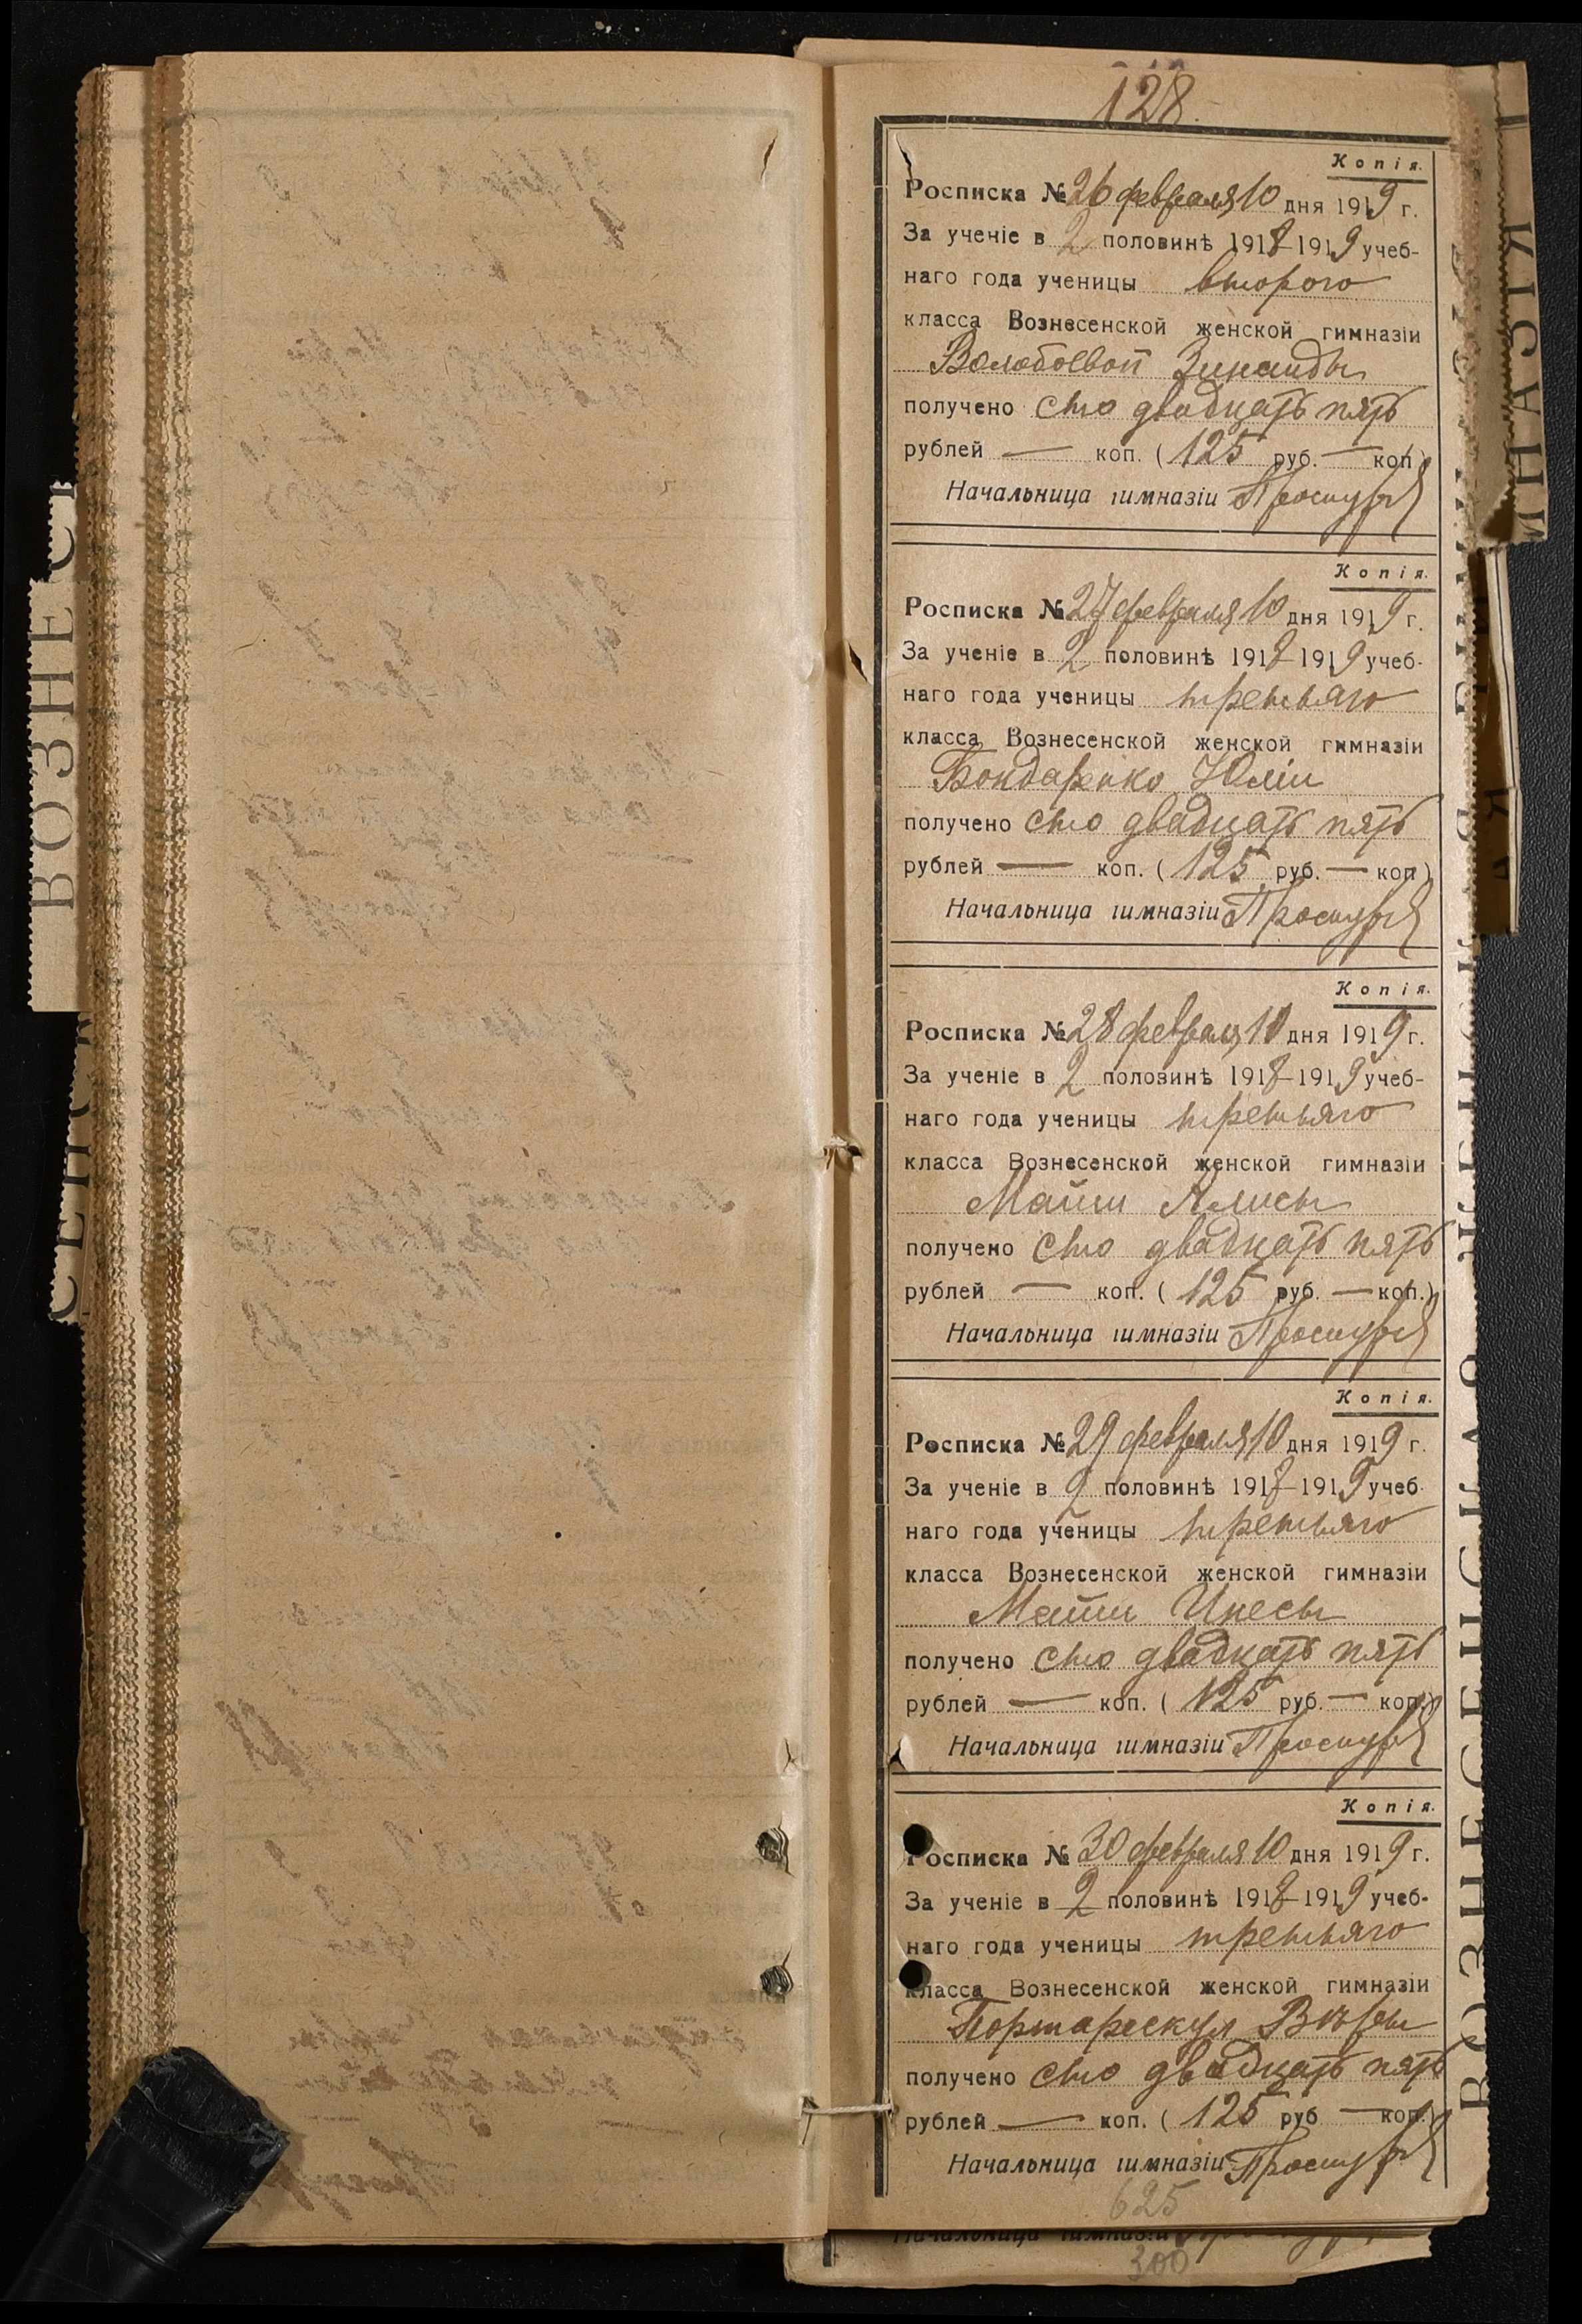 128
Копія.
Росписка № 26 февраля 10 дня 1919 г.
За ученіе в 2 половинѣ 1918-1919 учеб-
наго года ученицы второго
класса Вознесенской женской гимназіи
Волобоевой Зинаиды
получено сто двадцать пять
рублей — коп. (125 руб. — коп)
Начальница гимназіи
Копія.
Росписка № 27 февраля 10 дня 1919 г.
За ученіе в 2 половинѣ 1918-1919 учеб-
наго года ученицы третьяго
класса Вознесенской женской гимназіи
Бондаренко Юліи
получено сто двадцать пять
рублей — коп. (125 руб. — коп)
Начальница гимназіи
Копія.
Росписка № 28 февраля 10 дня 1919 г.
За ученіе в 2 половинѣ 1918-1919 учеб-
наго года ученицы третьяго
класса Вознесенской женской гимназіи
Алисы
получено сто двадцать пять
рублей — коп. (125 руб. — коп.)
Начальница гимназіи
Копія.
Росписка № 29 февраля 10 дня 1919 г.
За ученіе в 2 половинѣ 1918-1919 учеб-
наго года ученицы третьяго
класса Вознесенской женской гимназіи
Инесы
получено сто двадцать пять
рублей — коп. (125 руб. — коп.)
Начальница гимназіи
Копія.
Росписка № 30 февраля 10 дня 1919 г.
За ученіе в 2 половинѣ 1918-1919 учеб-
наго года ученицы третьяго
класса Вознесенской женской гимназіи
Портарескул Вѣры
получено сто двадцать пять
рублей — коп. (125 руб — коп.)
Начальница гимназіи
625
Начальница гимназіи
300
ВОЗНЕС
ВОЗНЕСЕНСКАЯ ЖЕНСКАЯ